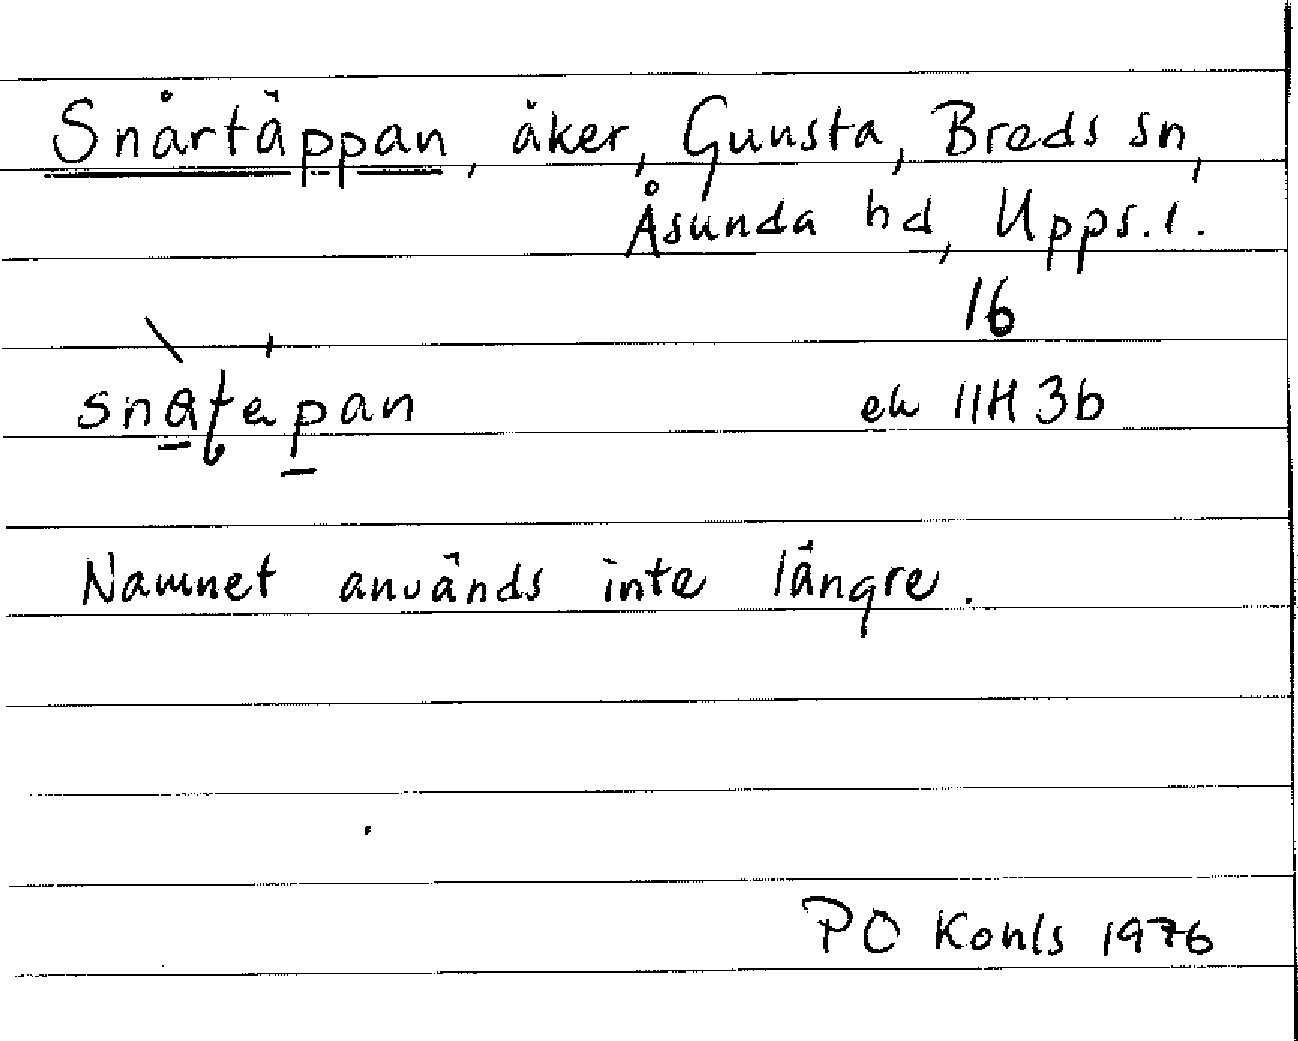 Snårtäppan, åker, Gunsta, Breds sn,
Åsunda hd, Upps.l.
16
ek 11H 3b
Namnet används inte längre.
PO Kohls 1976